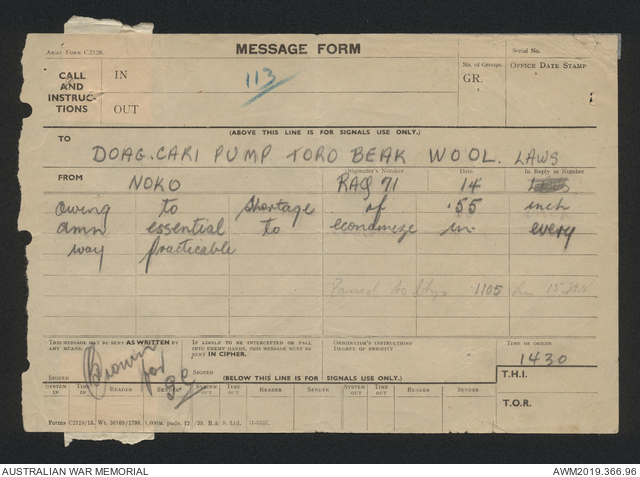 Army Form C.2128.
MESSAGE FORM
Serial No.
CALL AND INSTRUCTIONS
IN
OUT
113
No. of Groups.
GR.
OFFICE DATE STAMP
(ABOVE THIS LINE IS FOR SIGNALS USE ONLY.)
TO
DOAG. CARI PUMP TORO BEAK WOOL. LAWS
FROM
NOKO
Originator's Number
RAQ 71
Date
14
In Reply to Number
owing to shortage of .55 inch
amn essential to economize in every
way practicable
1105
THIS MESSAGE MAY BE SENT AS WRITTEN BY ANY MEANS.
SIGNED
for
IF LIABLE TO BE INTERCEPTED OR FALL INTO ENEMY HANDS, THIS MESSAGE MUST BE SENT IN CIPHER.
SIGNED
ORIGINATOR'S INSTRUCTIONS
DEGREE OF PRIORITY
TIME OF ORIGIN
1430
(BELOW THIS LINE IS FOR SIGNALS USE ONLY.)
T.H.I.
SYSTEM IN TIME IN READER SENDER SYSTEM OUT TIME OUT READER SENDER SYSTEM OUT TIME OUT READER SENDER
T.O.R.
AUSTRALIAN WAR MEMORIAL
AWM2019.366.96